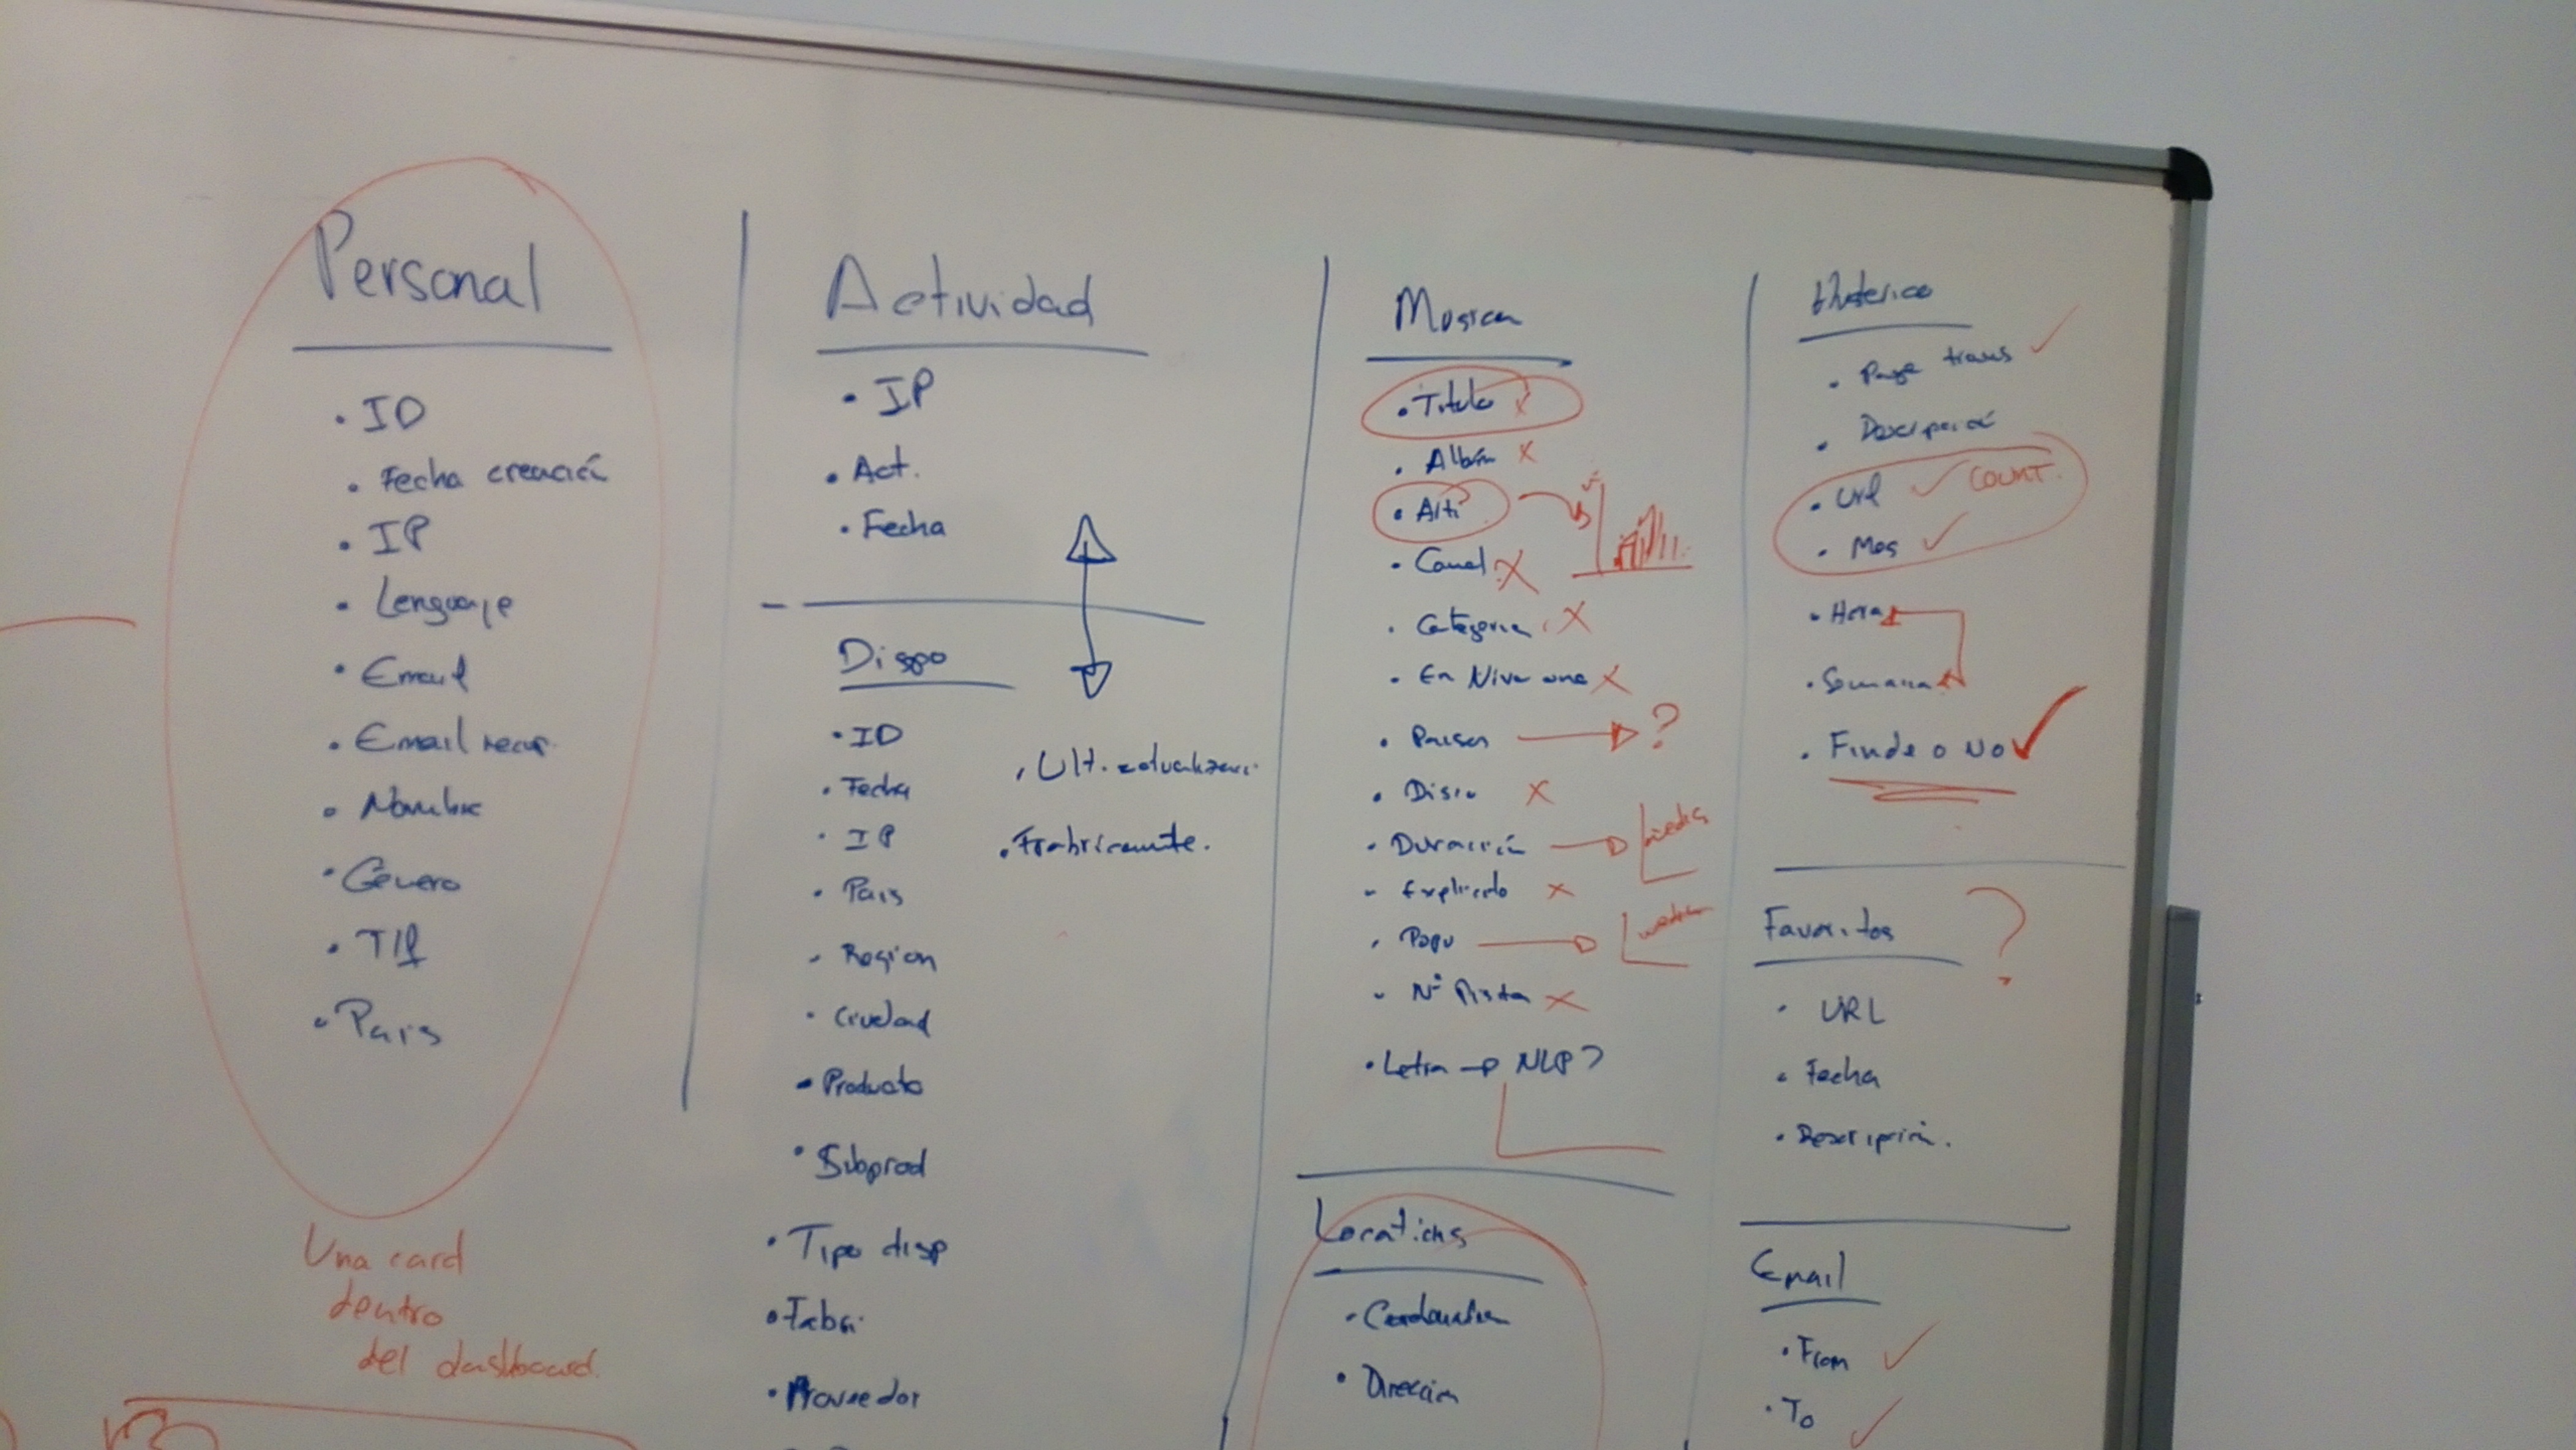 Personal
• ID
• Fecha creación
• IP
• Lenguaje
• Email
• Email recup.
• Nombre
• Género
• Tlf
• Pais
Una card
dentro
del dashboard.
Actividad
• IP
• Act.
• Fecha
Dispo
• ID
• Fecha
• IP
• Pais
• Region
• Ciudad
• Producto
• Subprod
• Tipo disp
• Fabri.
• Proveedor
• Ult. actualizaci.
• Frabricante.
Musica
• Titulo
• Album x
• Arti
• Canal X
• Categoria X
• En X
• Paises → ?
• Disco X
• Duración → media
- Explicito x
• Popu → media
- Nº Pista X
• Letra → NLP?
Locations
• Cordenadas
• Dirección
Historico
• Page trans ✓
• Descripció
• Url ✓ COUNT.
• Mes ✓
• Hora
• Semana
• Finde o No ✓
Favoritos ?
• URL
• Fecha
• Descripción.
Email
• From ✓
• To ✓